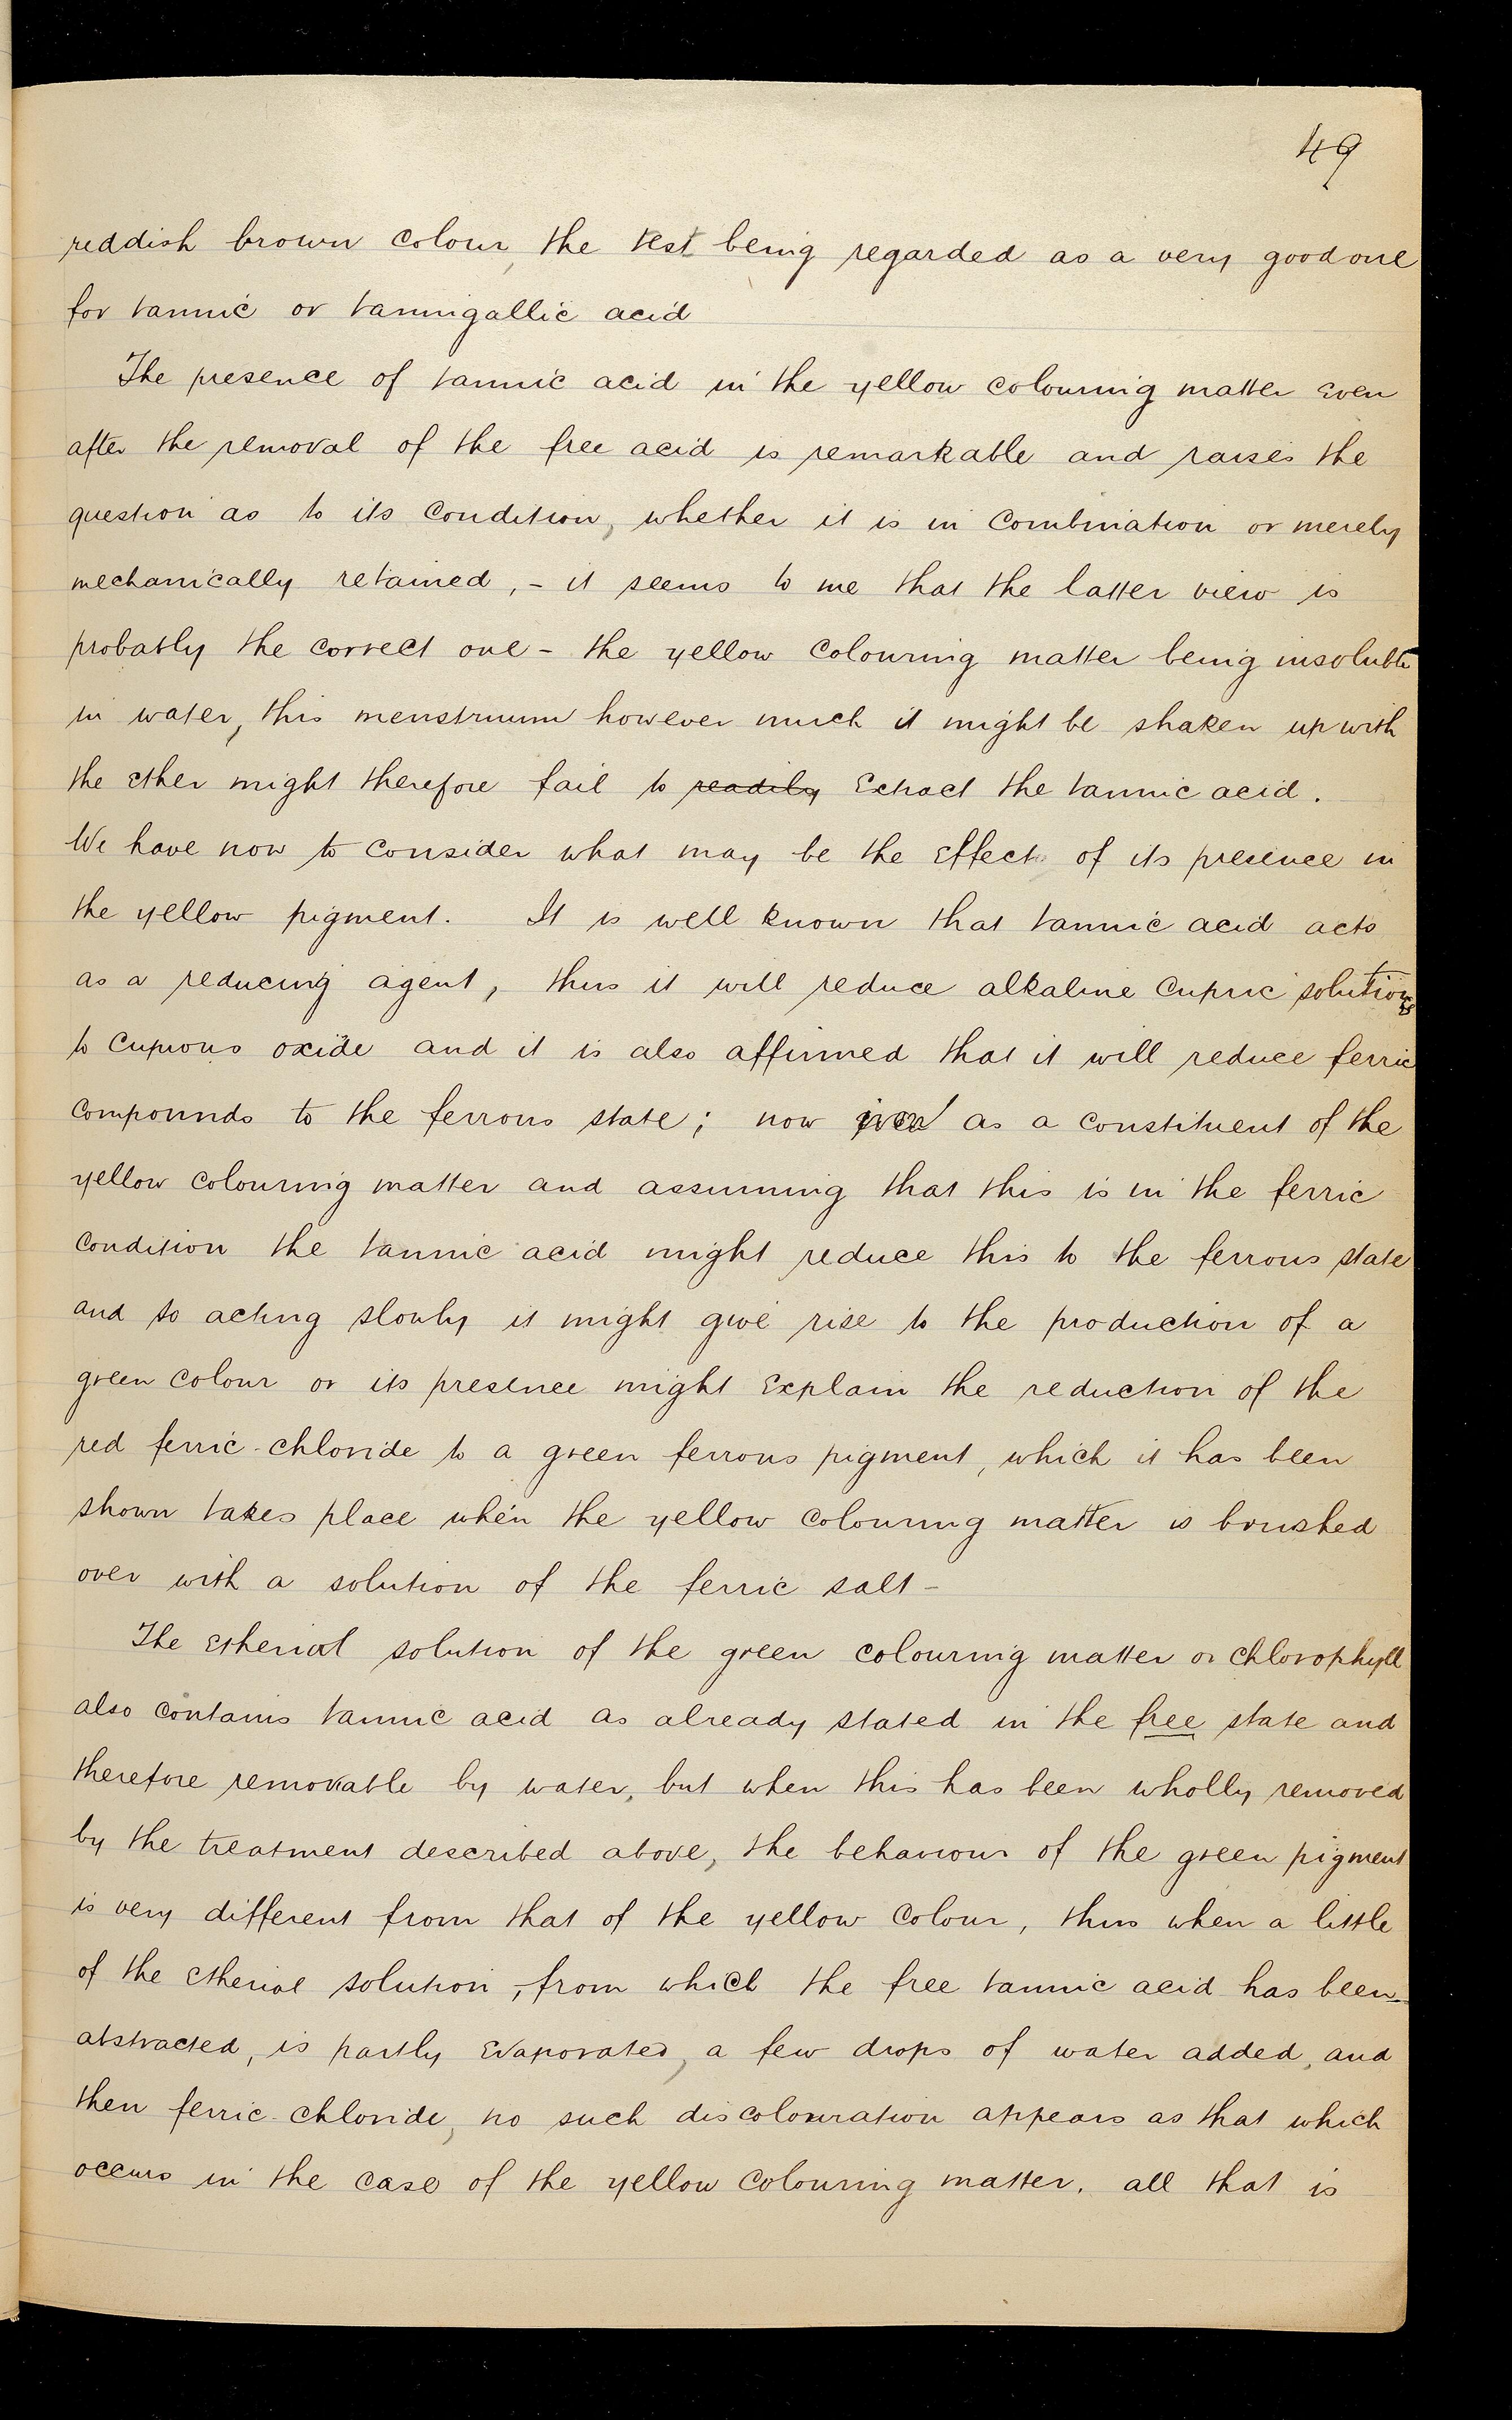 49
reddish brown colour, the test being regarded as a very good one
for tannic or tannigallic acid
The presence of tannic acid in the yellow colouring matter even
after the removal of the free acid is remarkable and raises the
question as to its condition, whether it is in combination or merely
mechanically retained, - it seems to me that the latter view is
probably the correct one - the yellow colouring matter being insoluble
in water, this menstruum however much it might be shaken up with
the ether might therefore fail to readily extract the tannic acid.
We have now to consider what may be the effect of its presence in
the yellow pigment. It is well known that tannic acid acts
as a reducing agent, thus it will reduce alkaline cupric solutions
to cuprous oxide and it is also affirmed that it will reduce ferric
compounds to the ferrous state; now iron as a constituent of the
yellow colouring matter and assuming that this is in the ferric
condition the tannic acid might reduce this to the ferrous state
and so acting slowly it might give rise to the production of a
green colour or its presence might explain the reduction of the
red ferric-chloride to a green ferrous pigment, which it has been
shown takes place when the yellow colouring matter is brushed
over with a solution of the ferric salt -
The etherial solution of the green colouring matter or chlorophyll
also contains tannic acid as already stated in the free state and
therefore removable by water, but when this has been wholly removed
by the treatment described above, the behaviour of the green pigment
is very different from that of the yellow colour, thus when a little
of the etherial solution, from which the free tannic acid has been
abstracted, is partly evaporated, a few drops of water added, and
then ferric-chloride, no such discolouration appears as that which
occurs in the case of the yellow colouring matter, all that is